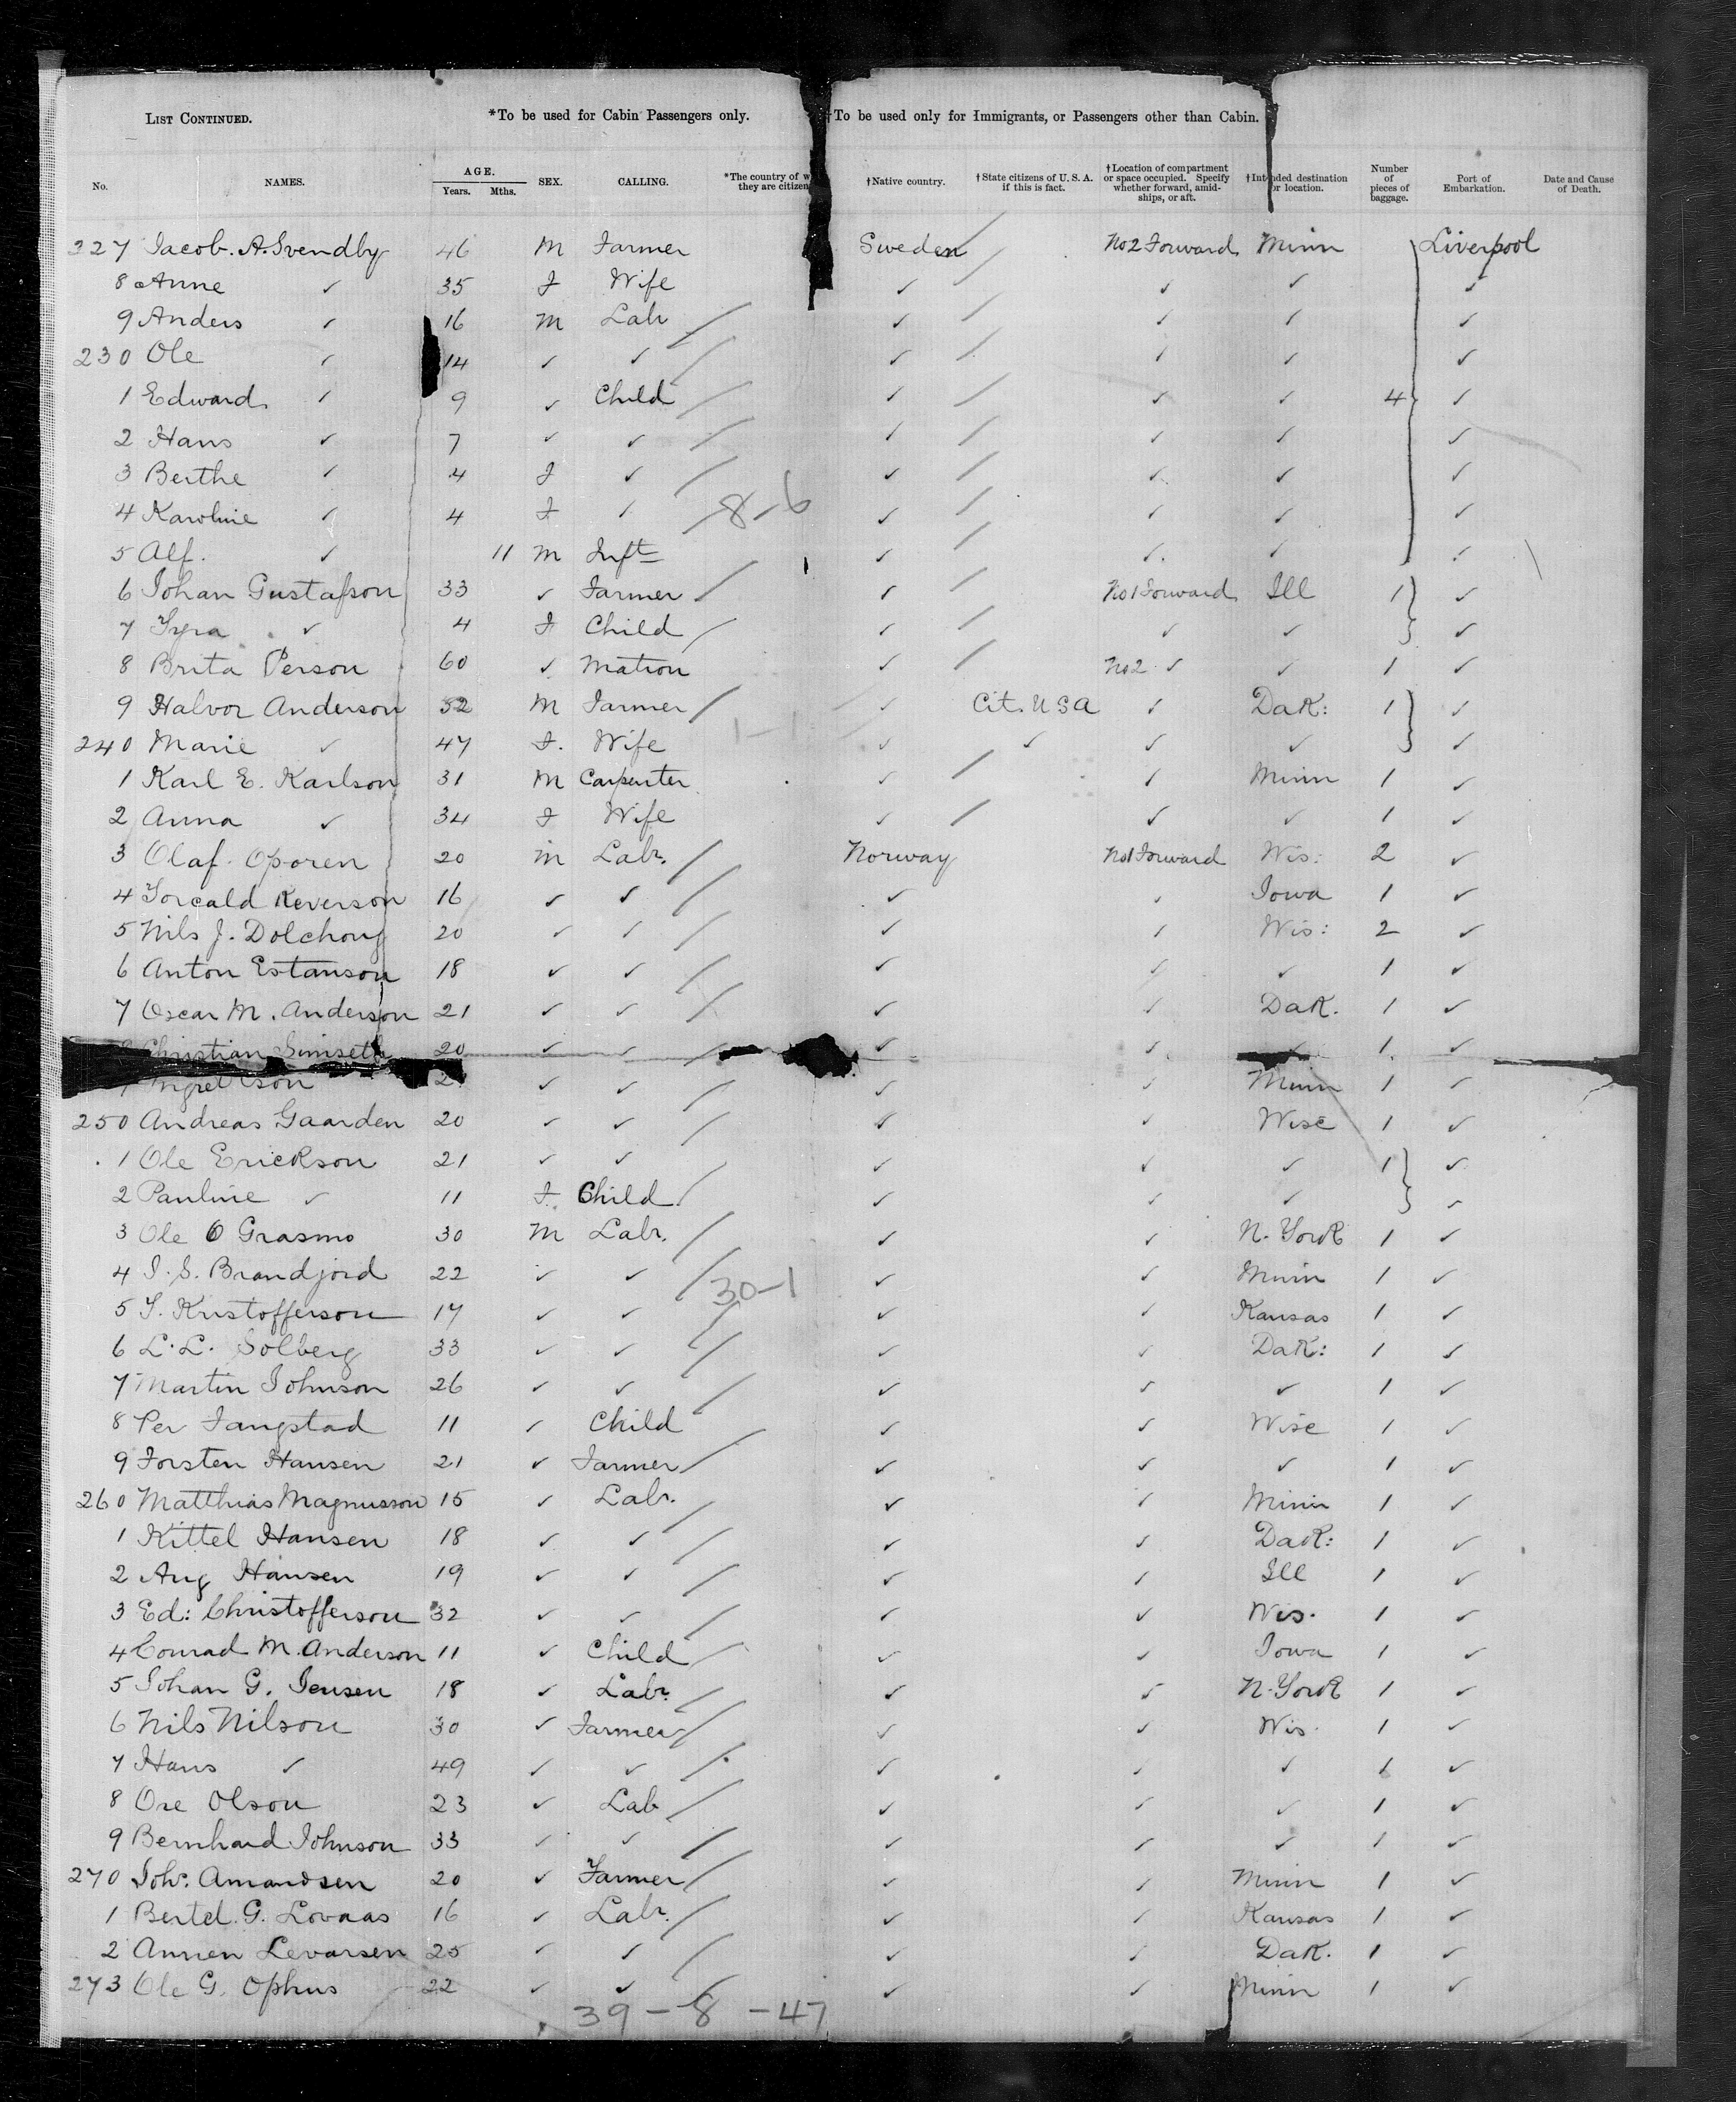 LIST CONTINUED. *To be used for Cabin Passengers only. †To be used only for Immigrants, or Passengers other than Cabin.
No. NAMES. AGE. Years. Mths. SEX. CALLING. *The country of w they are citizen †Native country. †State citizens of U. S. A. if this is fact. †Location of compartment or space occupied. Specify whether forward, amid-ships, or aft. †Intended destination or location. Number of pieces of baggage. Port of Embarkation. Date and Cause of Death.
227 Jacob. A. Svendby 46 M Farmer Sweden No 2 Forward Minn Liverpool
8 Anne ✓ 35 F Wife ✓ ✓ ✓ ✓
9 Anders ✓ 16 M Labr ✓ ✓ ✓ ✓
230 Ole ✓ 14 ✓ ✓ ✓ ✓ ✓ ✓
1 Edward ✓ 9 ✓ Child ✓ ✓ ✓ 4 ✓
2 Hans ✓ 7 ✓ ✓ ✓ ✓ ✓ ✓
3 Berthe ✓ 4 F ✓ ✓ ✓ ✓ ✓
4 Karoline ✓ 4 F ✓ 8-6 ✓ ✓ ✓ ✓
5 Alf. ✓ 11 M Inft ✓ ✓ ✓ ✓
6 Johan Gustafson 33 ✓ Farmer ✓ No 1 Forward Ill 1 ✓
7 Tyra ✓ 4 F Child ✓ ✓ ✓ ✓
8 Brita Person 60 ✓ Matron ✓ No 2 ✓ ✓ 1 ✓
9 Halvor Anderson 52 M Farmer ✓ Cit. U S A ✓ Dak: 1 ✓
240 Marie ✓ 47 F. Wife 1-1 ✓ ✓ ✓ ✓ ✓
1 Karl E. Karlson 31 M Carpenter ✓ ✓ Minn 1 ✓
2 Anna ✓ 34 F Wife ✓ ✓ ✓ 1 ✓
3 Olaf. Oporen 20 M Labr. Norway No 1 Forward Wis: 2 ✓
4 Torcald Reverson 16 ✓ ✓ ✓ ✓ Iowa 1 ✓
5 Nils J. Dolchong 20 ✓ ✓ ✓ ✓ Wis: 2 ✓
6 Anton Estanson 18 ✓ ✓ ✓ ✓ ✓ 1 ✓
7 Oscar M. Anderson 21 ✓ ✓ ✓ ✓ Dak. 1 ✓
Christian Simseth 20 ✓ ✓ ✓ ✓ ✓ 1 ✓
✓ ✓ ✓ ✓ Minn 1 ✓
250 Andreas Gaarden 20 ✓ ✓ ✓ ✓ Wisc 1 ✓
1 Ole Erickson 21 ✓ ✓ ✓ ✓ ✓ 1 ✓
2 Pauline ✓ 11 F. Child ✓ ✓ ✓ ✓
3 Ole O Grasmo 30 M Labr. ✓ ✓ N. York 1 ✓
4 I. S. Brandjord 22 ✓ ✓ 30-1 ✓ ✓ Minn 1 ✓
5 T. Kristofferson 17 ✓ ✓ ✓ ✓ Kansas 1 ✓
6 L. L. Solberg 33 ✓ ✓ ✓ ✓ Dak: 1 ✓
7 Martin Johnson 26 ✓ ✓ ✓ ✓ ✓ 1 ✓
8 Per Fangstad 11 ✓ Child ✓ ✓ Wisc 1 ✓
9 Torsten Hansen 21 ✓ Farmer ✓ ✓ ✓ 1 ✓
260 Matthias Magnusson 15 ✓ Labr. ✓ ✓ Minn 1 ✓
1 Kittel Hansen 18 ✓ ✓ ✓ ✓ Dak: 1 ✓
2 Aug Hansen 19 ✓ ✓ ✓ ✓ Ill 1 ✓
3 Ed: Christofferson 32 ✓ ✓ ✓ ✓ Wis. 1 ✓
4 Conrad M. Anderson 11 ✓ Child ✓ ✓ Iowa 1 ✓
5 Johan G. Jensen 18 ✓ Labr. ✓ ✓ N. York 1 ✓
6 Nils Nilson 30 ✓ Farmer ✓ ✓ Wis. 1 ✓
7 Hans ✓ 49 ✓ ✓ ✓ ✓ ✓ 1 ✓
8 Ore Olson 23 ✓ Lab ✓ ✓ ✓ 1 ✓
9 Bernhard Johnson 33 ✓ ✓ ✓ ✓ ✓ 1 ✓
270 Joh: Amandsen 20 ✓ Farmer ✓ ✓ Minn 1 ✓
1 Bertel. G. Lovaas 16 ✓ Labr. ✓ ✓ Kansas 1 ✓
2 Annen Levarsen 25 ✓ ✓ ✓ ✓ Dak. 1 ✓
273 Ole G. Ophus 22 ✓ ✓ ✓ ✓ Minn 1 ✓
39 - 8 - 47